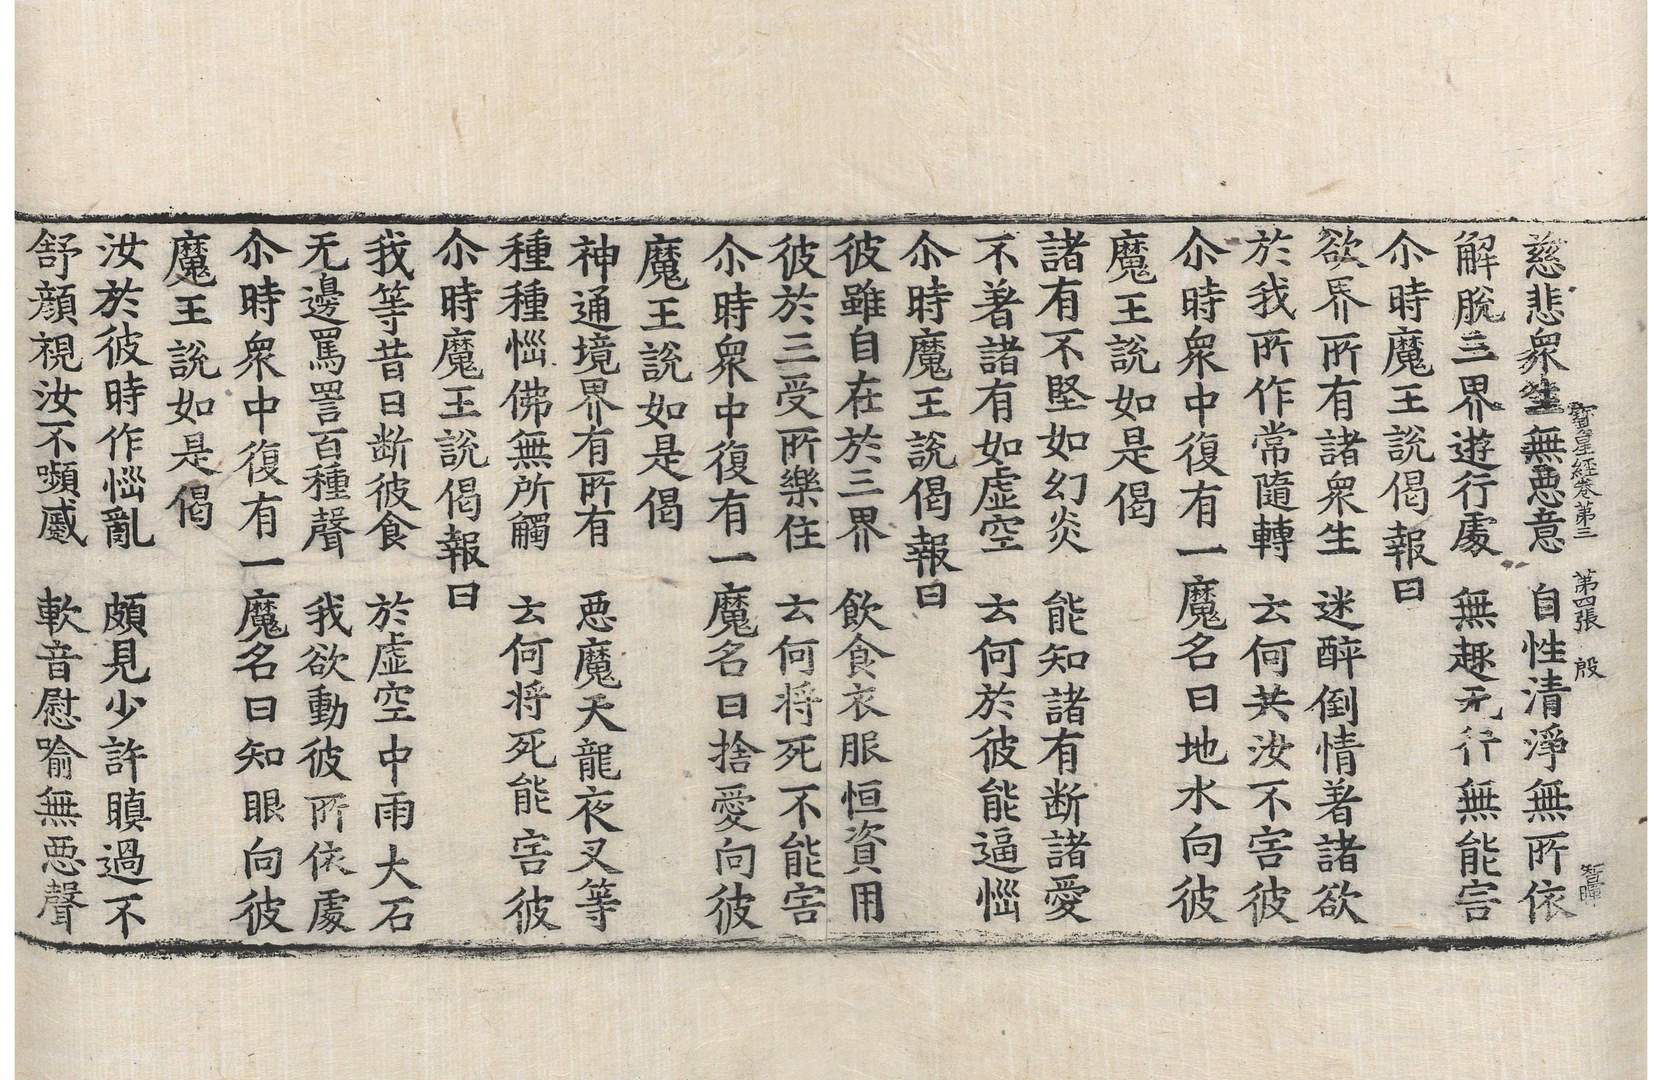 寶星經卷第三 第四張 殷 智暉
慈悲衆生無惡意 自性清淨無所依
解脫三界遊行處 無趣无行無能害
尒時魔王說偈報曰
欲界所有諸衆生 迷醉倒情著諸欲
於我所作常隨轉 云何共汝不害彼
尒時衆中復有一魔名曰地水向彼
魔王說如是偈
諸有不堅如幻炎 能知諸有断諸愛
不著諸有如虛空 云何於彼能逼惱
尒時魔王說偈報曰
彼雖自在於三界 飲食衣服恒資用
彼於三受所樂住 云何将死不能害
尒時衆中復有一魔名曰捨愛向彼
魔王說如是偈
神通境界有所有 惡魔天龍夜叉等
種種惱佛無所觸 云何将死能害彼
尒時魔王說偈報曰
我等昔日断彼食 於虛空中雨大石
无邊罵詈百種聲 我欲動彼所依處
尒時衆中復有一魔名曰知眼向彼
魔王說如是偈
汝於彼時作惱亂 頗見少許瞋過不
舒顔視汝不嚬慼 軟音慰喻無惡聲